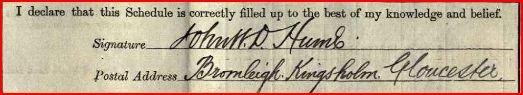 I declare that this Schedule is correctly filled up to the best of my knowledge and belief.
Signature John H. D. Hume
Postal Address Bromleigh. Kingsholm. Gloucester.